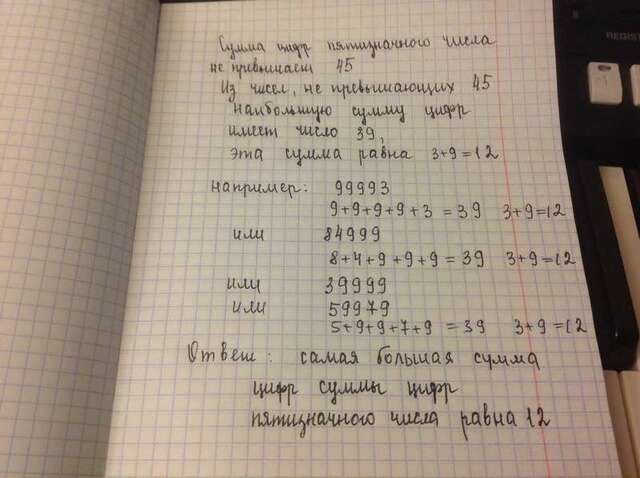 Сумма цифр пятизначного числа
не превышает 45
Из чисел, не превышающих 45
наибольшую сумму цифр
имеет число 39,
эта сумма равна 3+9=12
например: 99993
9+9+9+9+3=39 3+9=12
или 84999
8+4+9+9+9=39 3+9=12
или 39999
или 59979
5+9+9+7+9=39 3+9=12
Ответ: самая большая сумма
цифр суммы цифр
пятизначного числа равна 12
REGIST